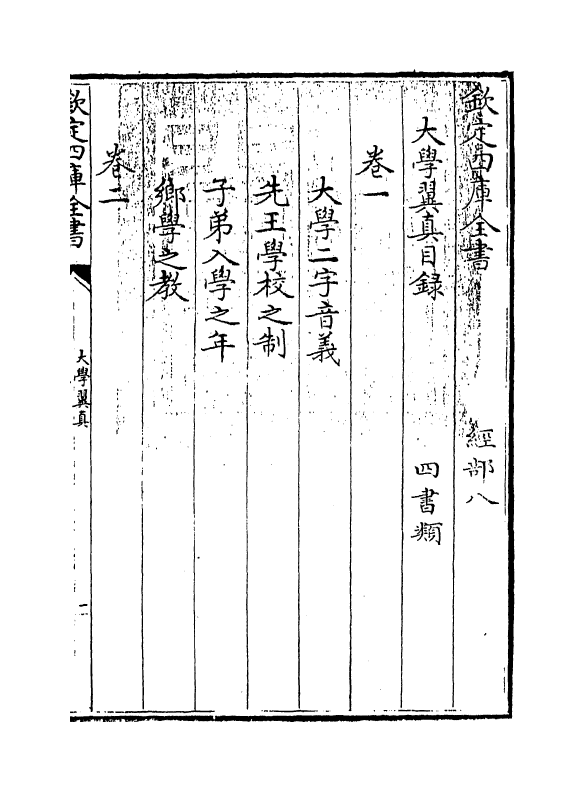 欽定四庫全書　經部八
大學翼真目錄　四書類
卷一
大學二字音義
先王學校之制
子弟入學之年
鄉學之教
卷二
欽定四庫全書　大學翼真　一